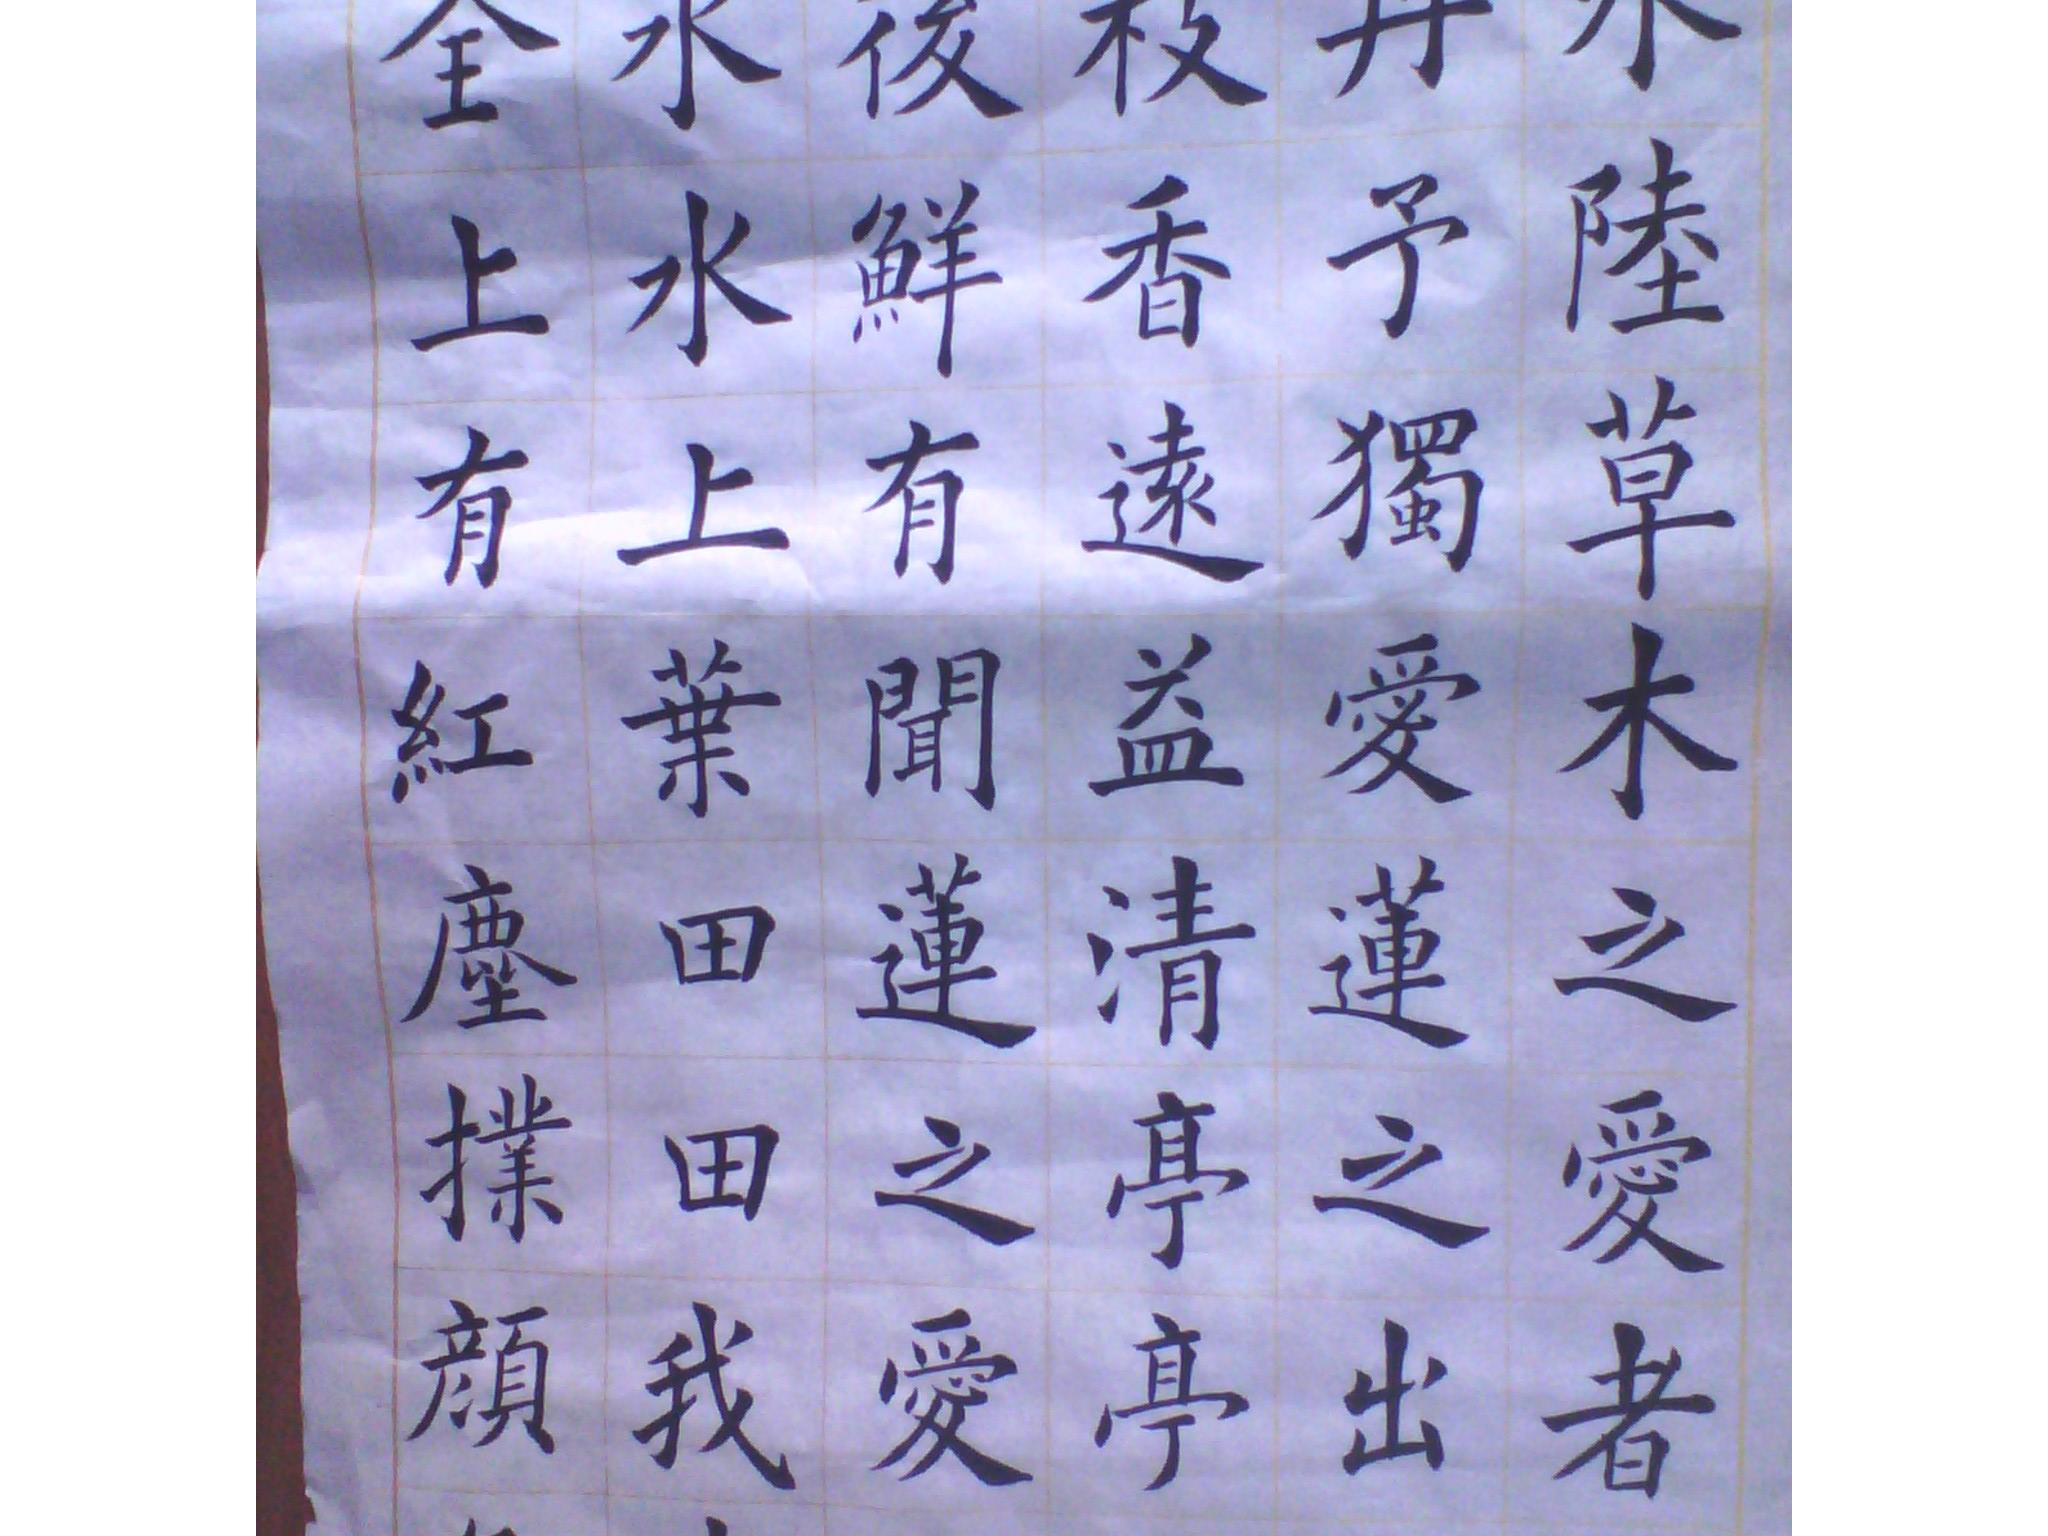 水陸草木之愛者
丹予獨愛蓮之出
枝香遠益清亭亭
後鮮有聞蓮之愛
水水上葉田田我
全上有紅塵撲顔